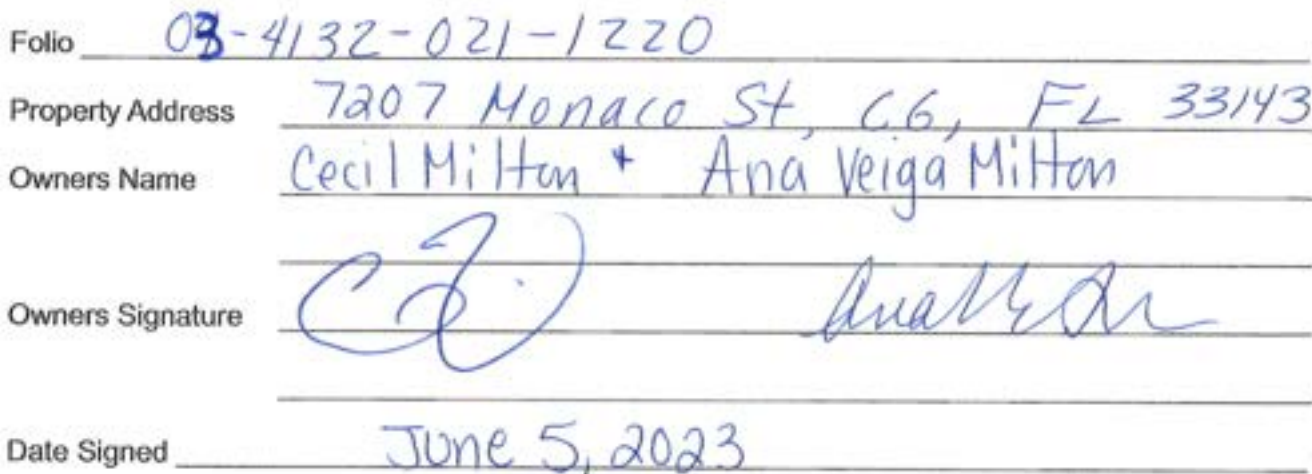 Folio 03-4132-021-1220
Property Address 7207 Monaco St, CG, FL 33143
Owners Name Cecil Milton + Ana Veiga Milton
Owners Signature
Date Signed June 5, 2023